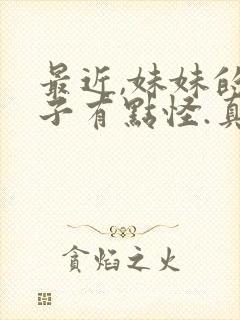 最近,妹妹的
子有點怪.真
貪焰之火